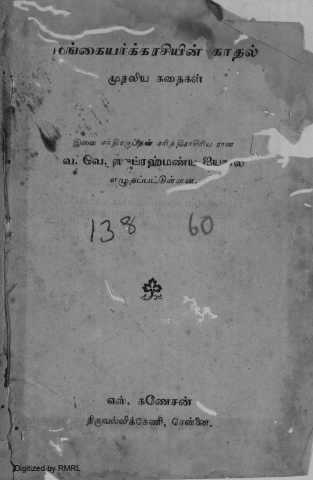 மங்கையர்க்கரசியின் காதல்
முதலிய கதைகள்
இவை சந்திரகுப்தன் சரித்திராசிரிய ரான
வ. வே. ஸுப்ரஹ்மண்ய ஐயரால்
எழுதப்பட்டுள்ளன.
138 60
எஸ். கணேசன்
திருவல்லிக்கேணி, சென்னை.
Digitized by RMRL